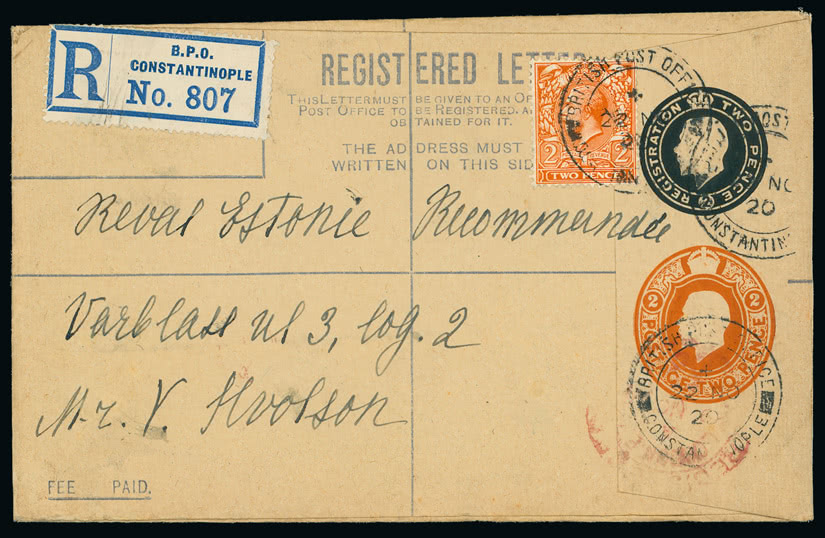 R
B.P.O.
CONSTANTINOPLE
No. 807
REGISTERED LETTER
THIS LETTER MUST BE GIVEN TO AN OF
POST OFFICE TO BE REGISTERED, A
OBTAINED FOR IT.
THE ADDRESS MUST
WRITTEN ON THIS SID
2 2
TWO PENCE
BRITISH POST OFF
20
REGISTRATION TWO PENCE
OST
NO
20
CONSTANTIN
Reval Estonie Recommandée
Varblass ul 3, log. 2
Mr. V. Hvolson
2 2
TWO PENCE
BRITISH POST OFFICE
22 NO
20
CONSTAN OPLE
FEE PAID.